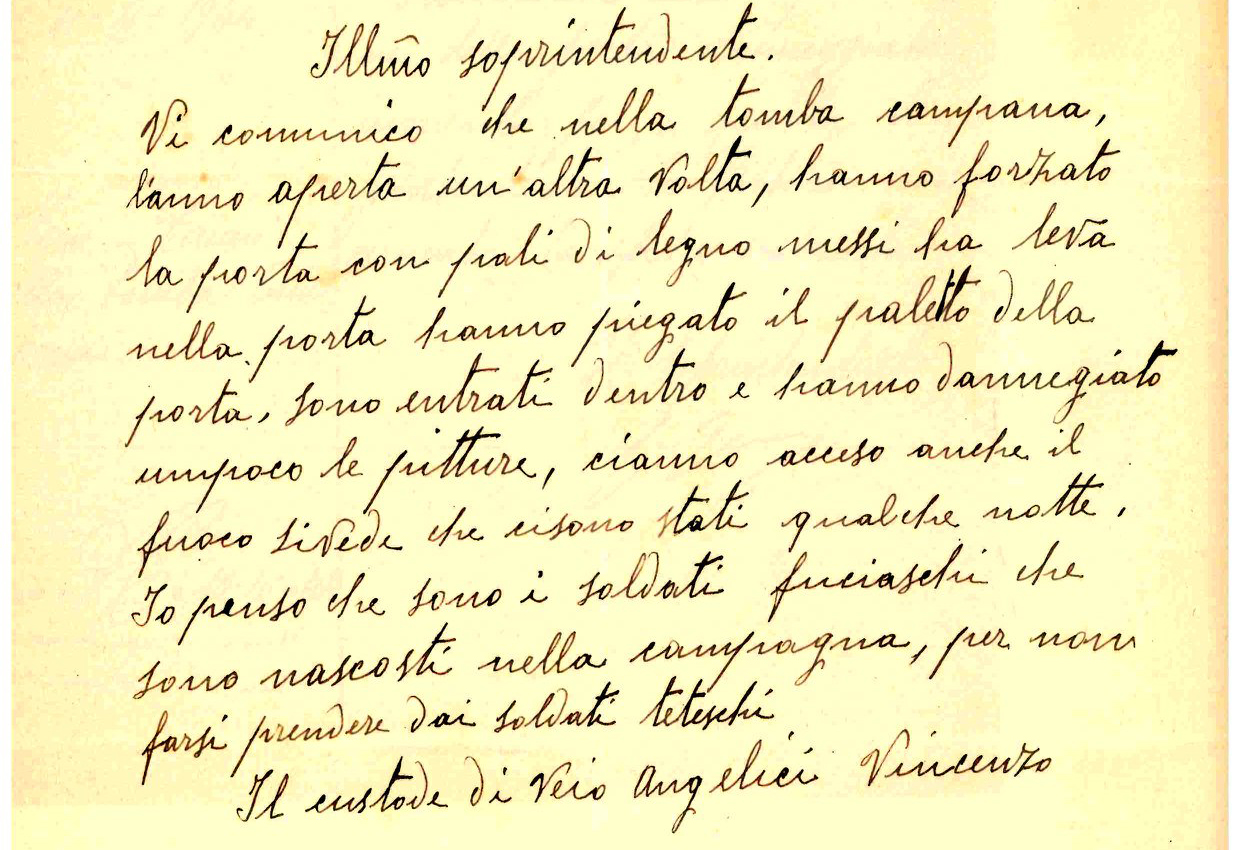 Illm̃o soprintendente.
Vi comunico che nella tomba campana,
l'anno aperta un'altra volta, hanno forzato
la porta con pali di legno messi ha leva
nella porta hanno piegato il paletto della
porta, sono entrati dentro e hanno dannegiato
umpoco le pitture, cianno acceso anche il
fuoco sivede che cisono stati qualche notte.
Io penso che sono i soldati fuciaschi che
sono nascosti nella campagna, per non
farsi prendere dai soldati teteschi
Il custode di Veio Angelici Vincenzo